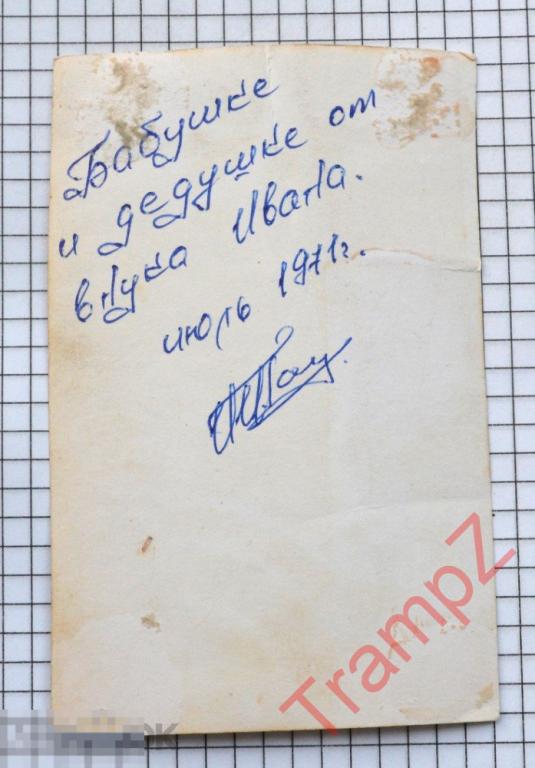 Бабушке
и дедушке от
внука Ивана.
июль 1971г.
TrampZ